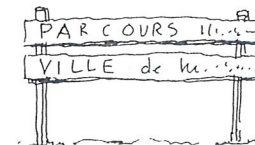 PARCOURS
VILLE de